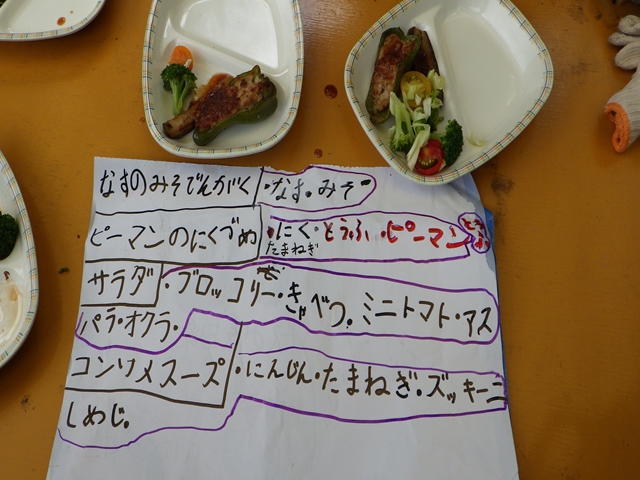 なすのみそでんがく ・なす。みそ
ピーマンのにくづめ ・にく・とうふ・ピーマン とうふ
たまねぎ
サラダ ・ブロッコリー・きゃべつ。ミニトマト・アス
パラ・オクラ・
コンソメスープ ・にんじん・たまねぎ。ズッキーニ
しめじ。